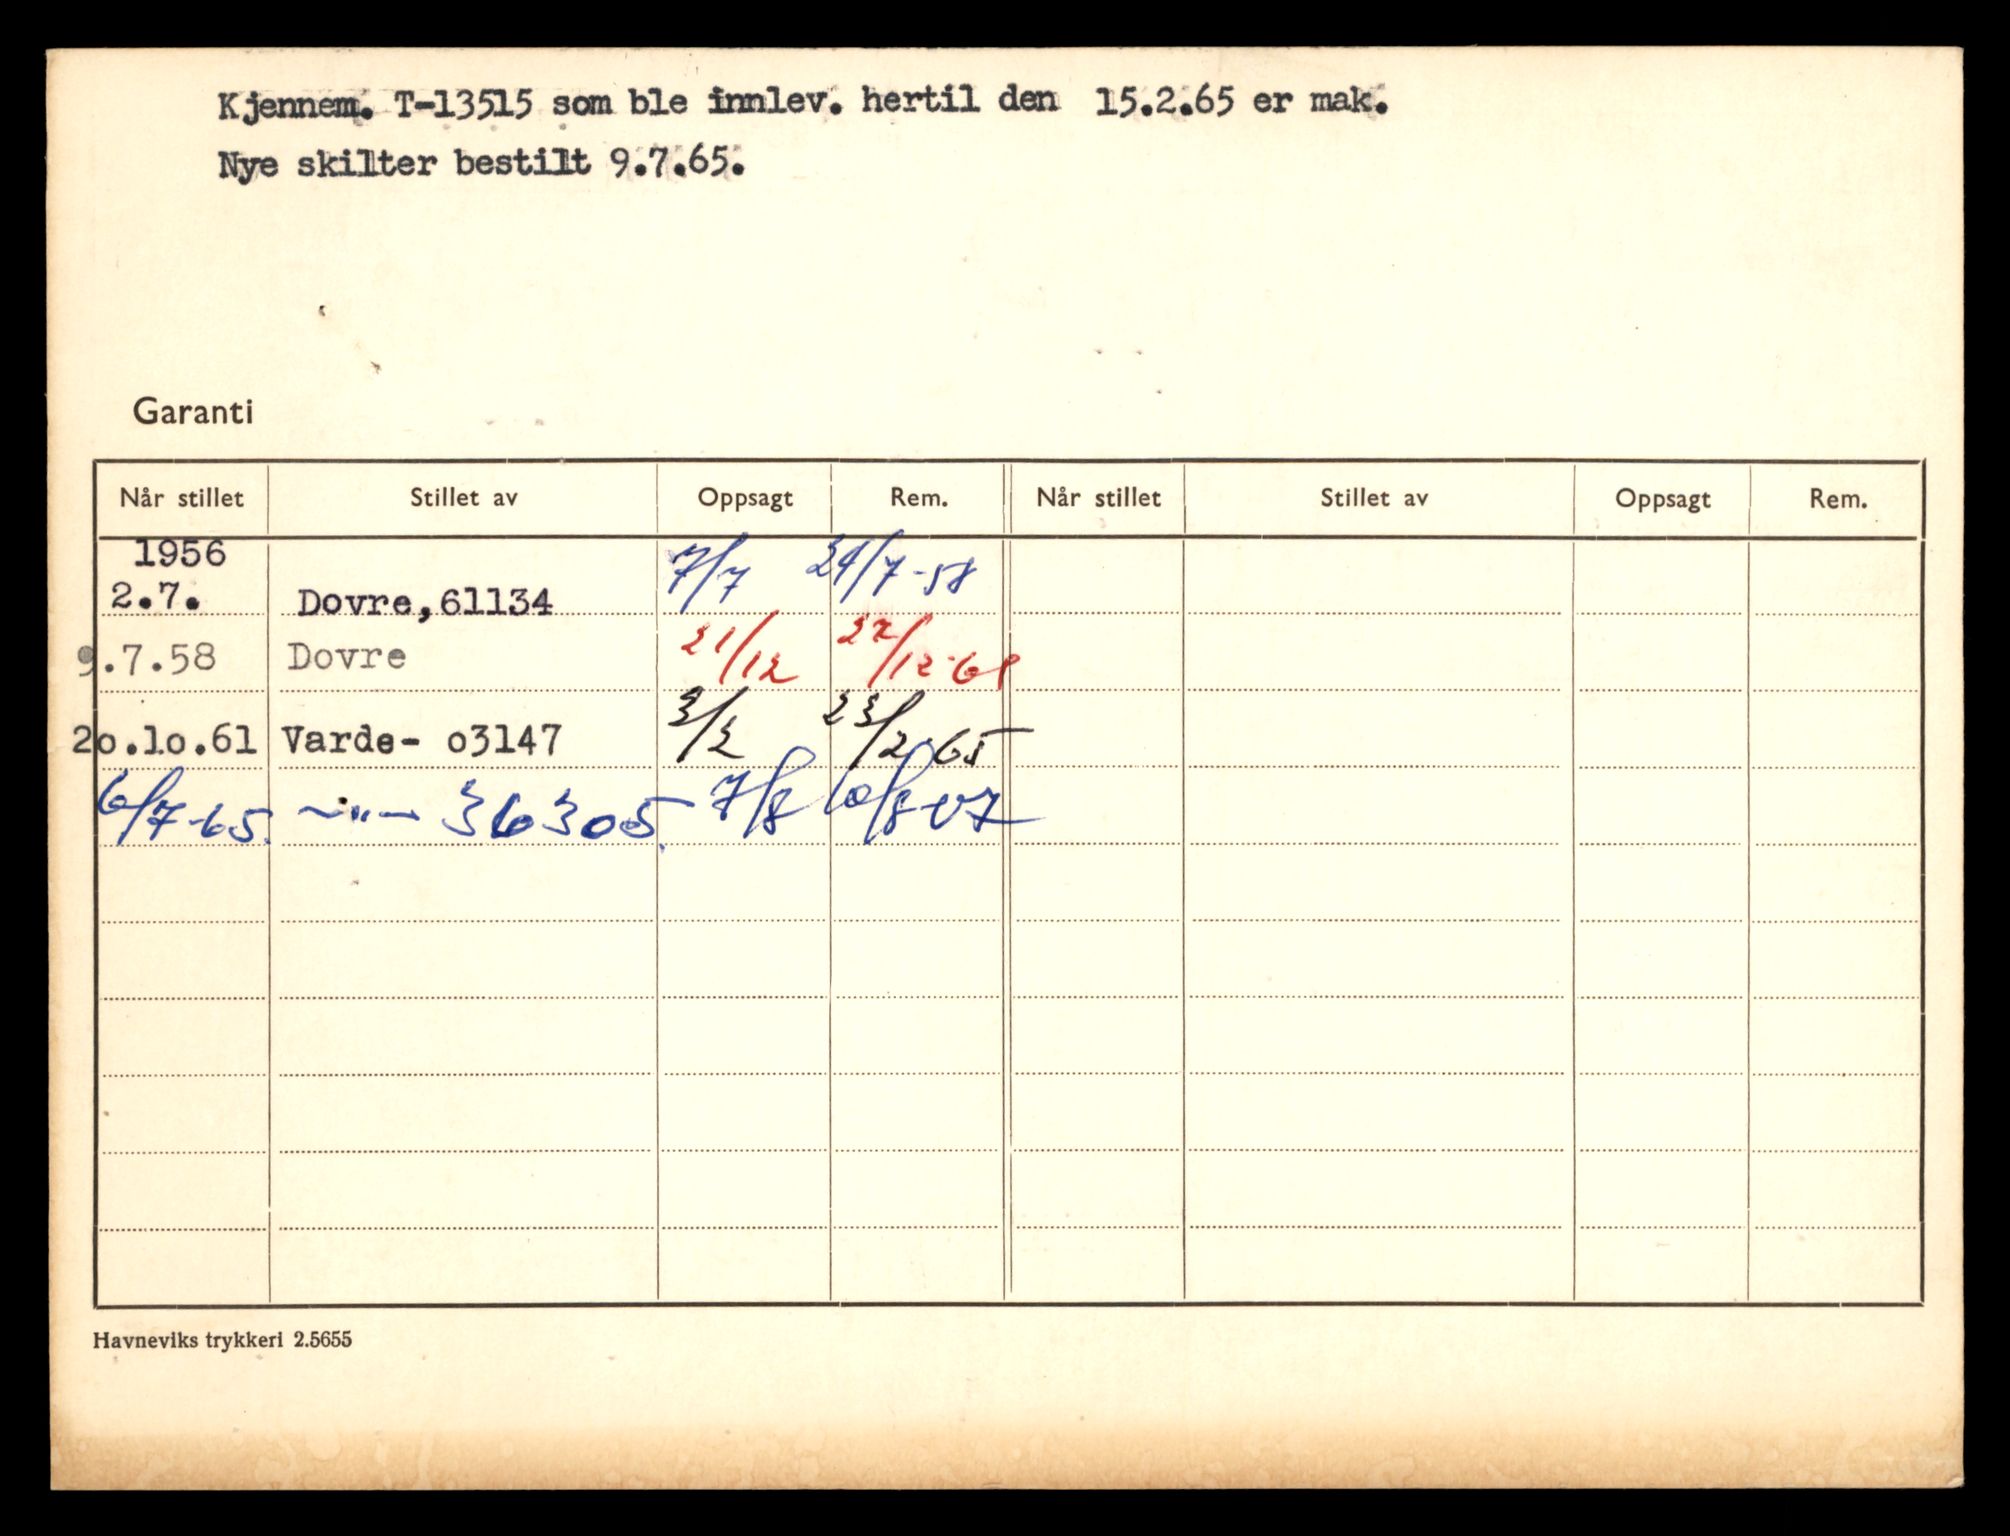 Kjennem. T-13515 som ble innlev. hertil den 15.2.65 er mak.
Nye skilter bestilt 9.7.65.
Garanti
Når stillet Stillet av Oppsagt Rem. Når stillet Stillet av Oppsagt Rem.
1956
2.7. Dovre,61134 7/7 24/7-58
9.7.58 Dovre 21/12 22/12-61
2o.1o.61 Varde- o3147 3/2 23/2-65
6/7-65. —"— 36305. 7/8 10/8-67
Havneviks trykkeri 2.5655